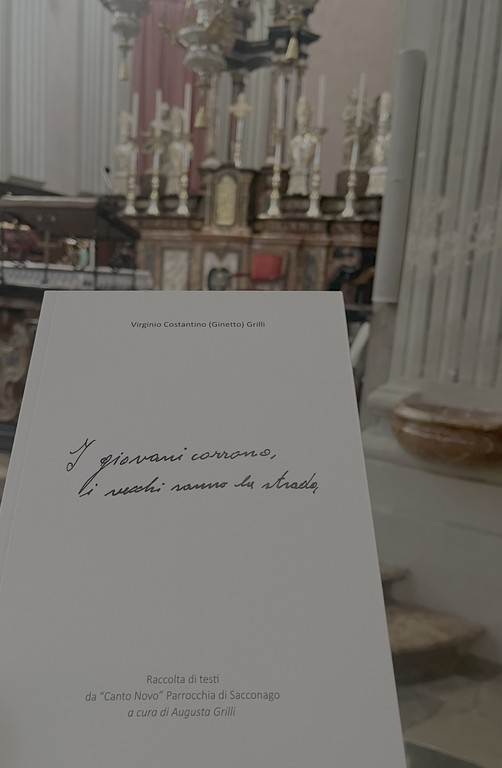 Virginio Costantino (Ginetto) Grilli
I giovani corrono,
i vecchi sanno la strada,
Raccolta di testi
da “Canto Novo” Parrocchia di Sacconago
a cura di Augusta Grilli